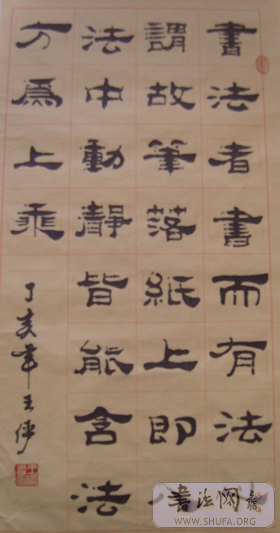 書法者書而有法
謂故筆落紙上即
法中動靜皆能含法
方爲上乘
丁亥年王
書法网
WWW.SHUFA.ORG